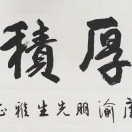 厚積
渝朋先生雅正